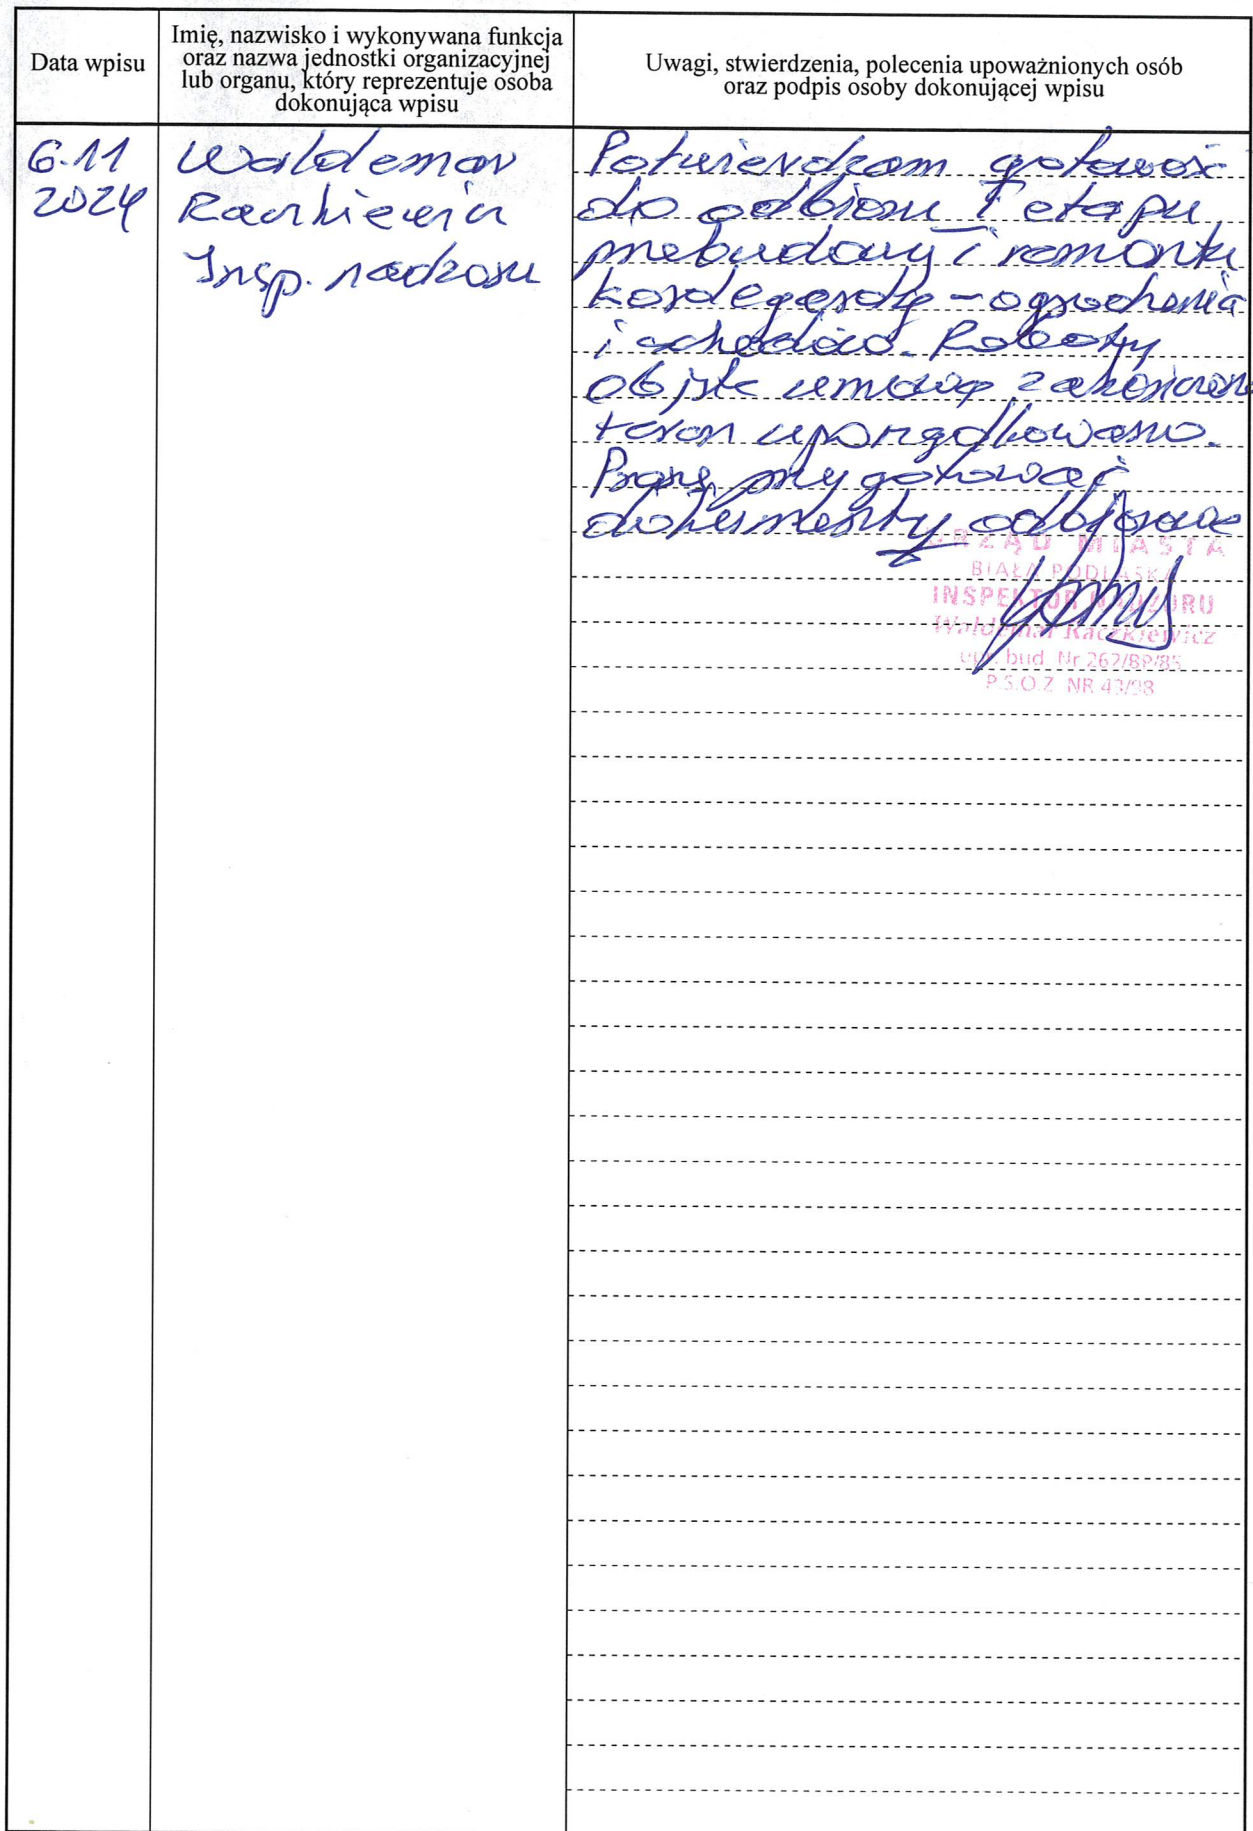 Data wpisu
Imię, nazwisko i wykonywana funkcja
oraz nazwa jednostki organizacyjnej
lub organu, który reprezentuje osoba
dokonująca wpisu
Uwagi, stwierdzenia, polecenia upoważnionych osób
oraz podpis osoby dokonującej wpisu
6.11
2024
Waldemar
Raczkiewicz
Insp. nadzoru
Potwierdzam gotowość
do odbioru I etapu
przebudowy i remontu
kordegardy - ogrodzenia
i schodów. Roboty
objęte umową zakończono
teren uporządkowano.
Proszę przygotować
dokumenty odbiorowe
URZĄD MIASTA
BIAŁA PODLASKA
INSPEKTOR NADZORU
Waldemar Raczkiewicz
upr. bud. Nr 267/89/85
P.S.O.Z NR 43/98